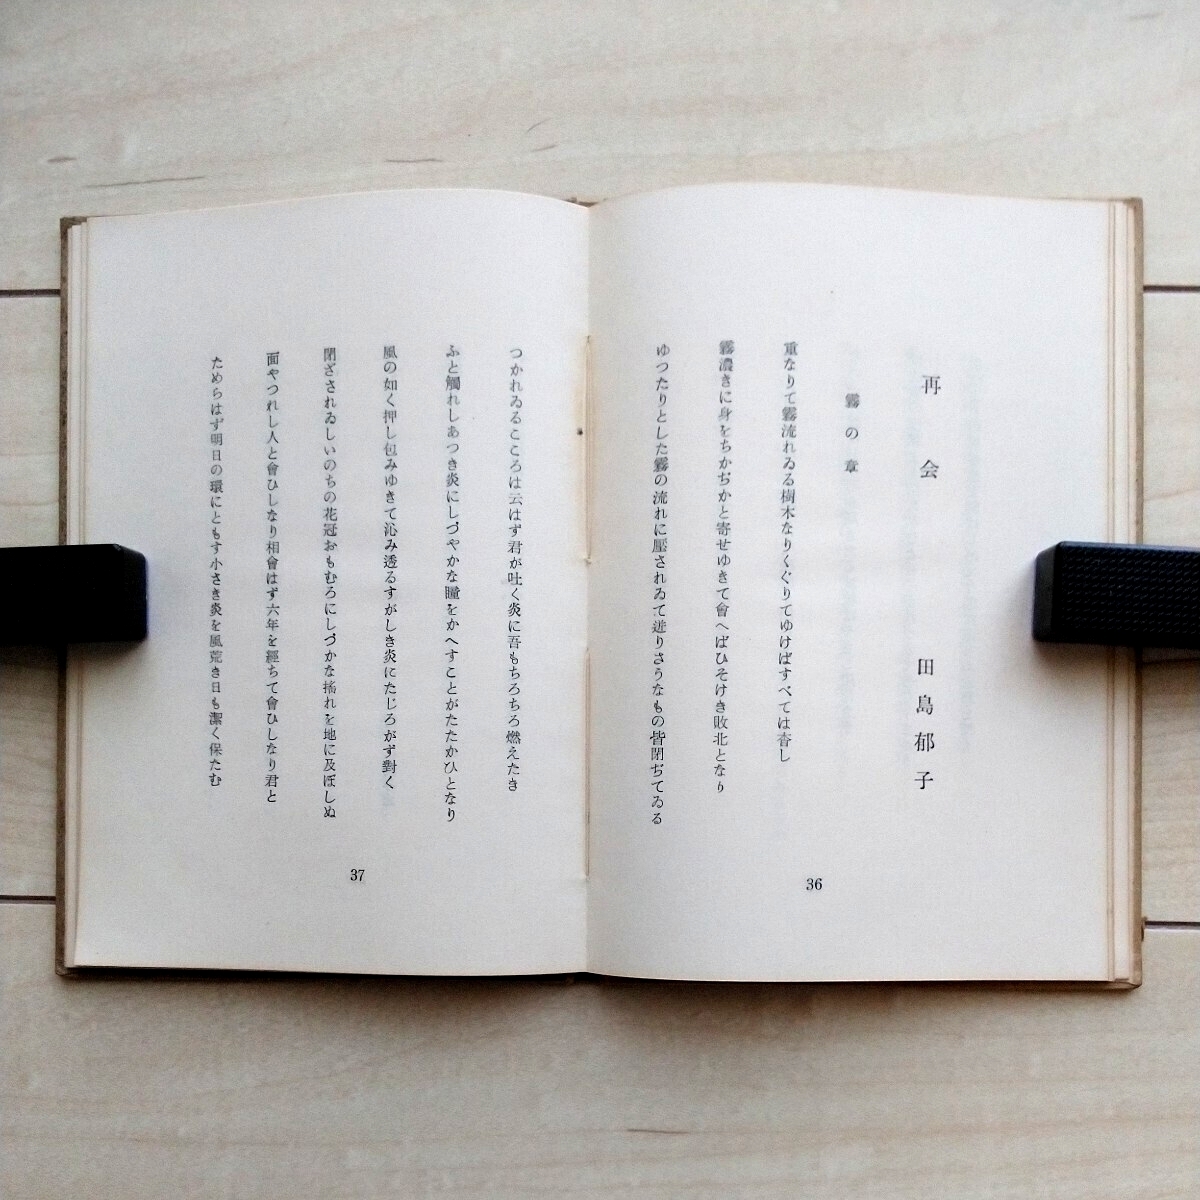 再会
田島郁子
霧の章
重なりて霧流れゐる樹木なりくぐりてゆけばすべては杳し
霧濃きに身をちかぢかと寄せゆきて會へばひそけき敗北となり
ゆつたりとした霧の流れに壓されゐて迸りさうなもの皆閉ぢてゐる
36
つかれゐるこころは云はず君が吐く炎に吾もちろちろ燃えたき
ふと觸れしあつき炎にしづやかな瞳をかへすことがたたかひとなり
風の如く押し包みゆきて沁み透るすがしき炎にたじろがず對く
閉ざされゐしいのちの花冠おもむろにしづかな搖れを地に及ぼしぬ
面やつれし人と會ひしなり相會はず六年を經ちて會ひしなり君と
ためらはず明日の環にともす小さき炎を風荒き日も潔く保たむ
37